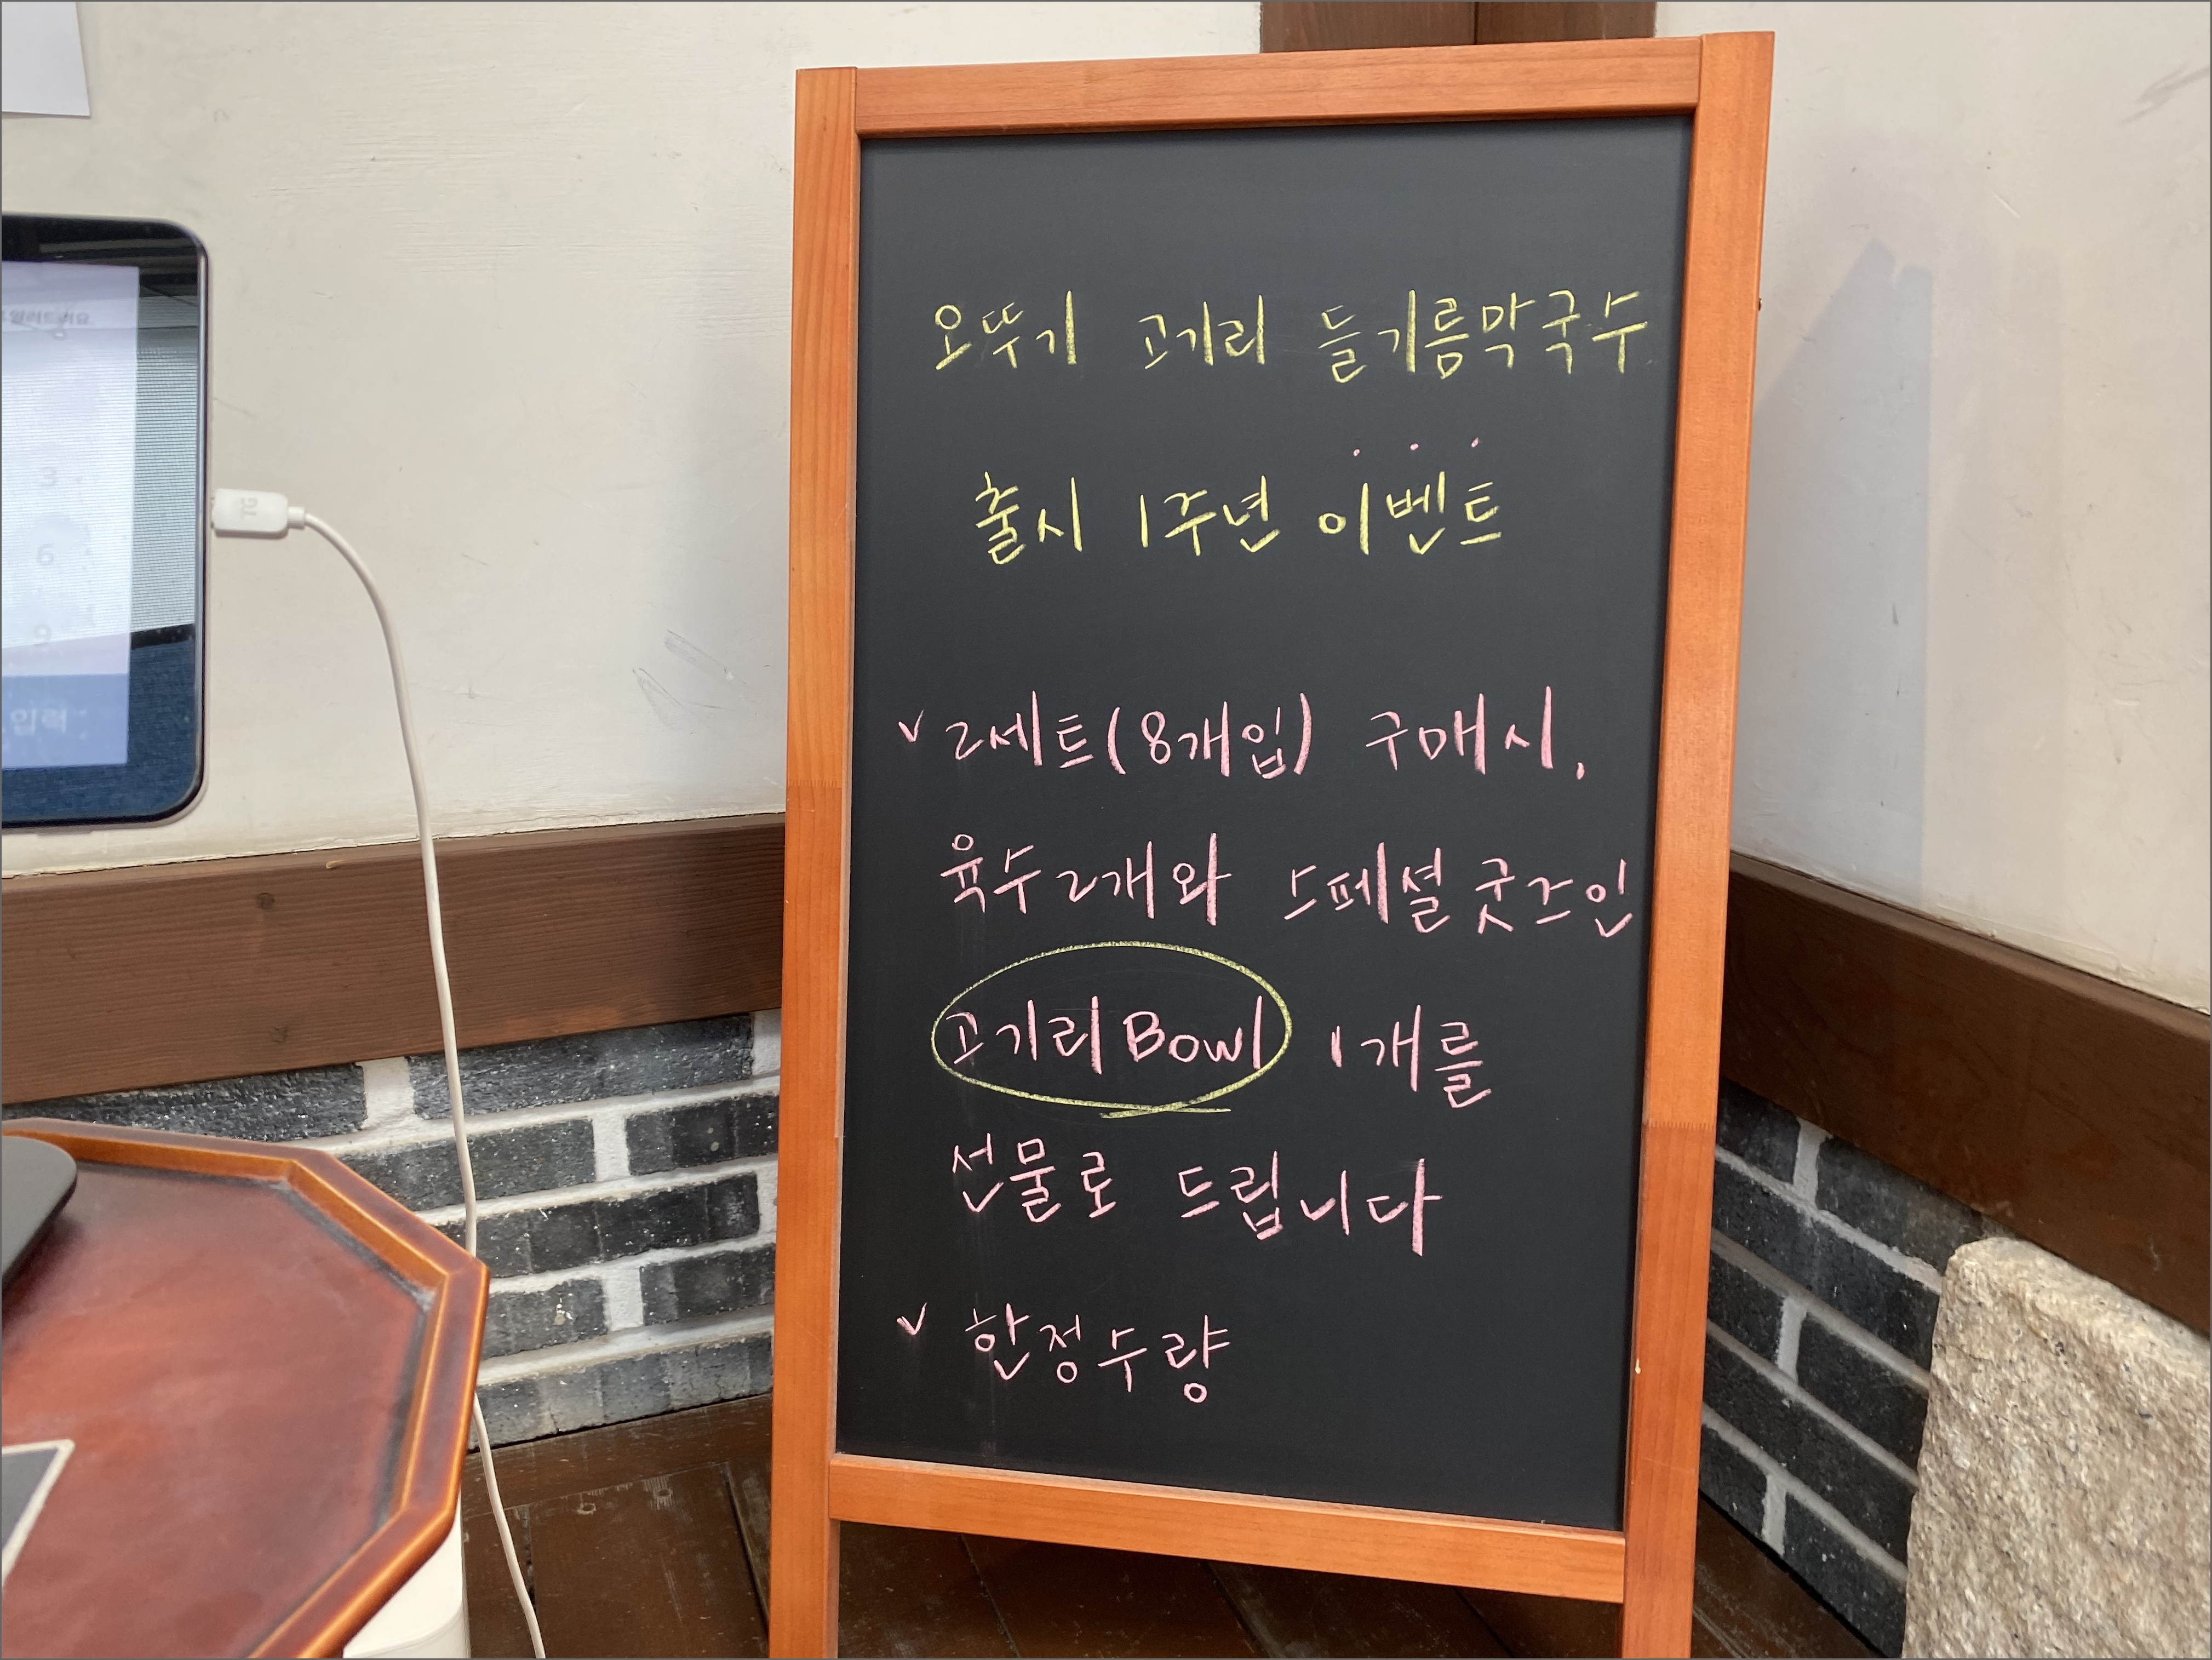 오뚜기 고기리 들기름막국수
출시 1주년 이벤트
v 2세트(8개입) 구매시,
육수 2개와 스페셜 굿즈인
고기리 Bowl 1개를
선물로 드립니다
v 한정수량
3
6
9
입력
TG